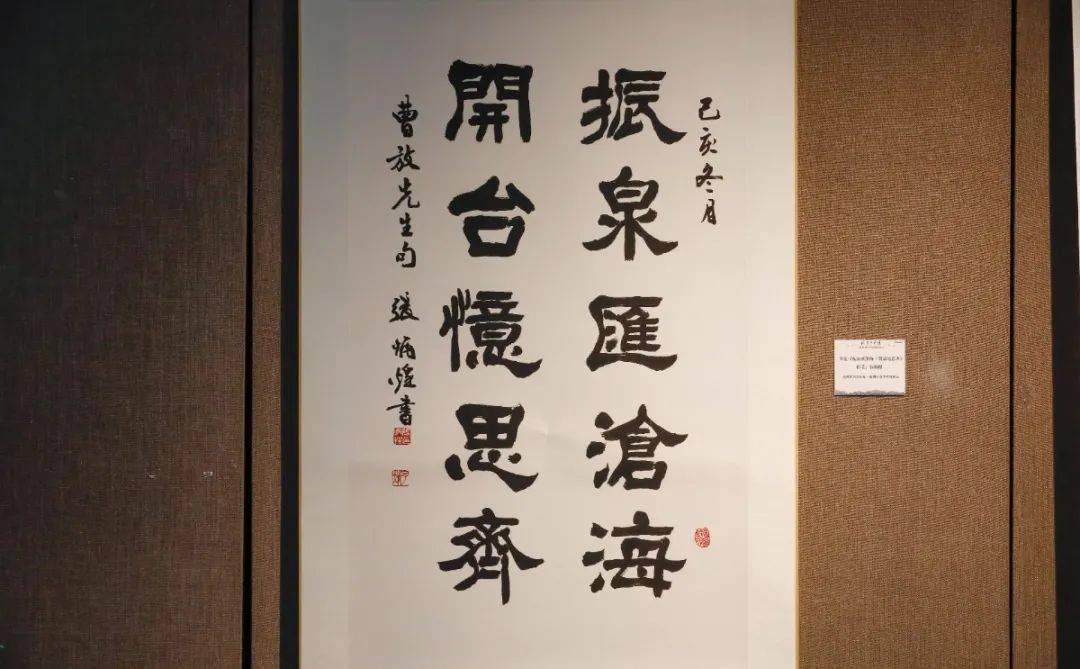 己亥冬月
振泉匯滄海
開台憶思齊
曹放先生句 張炳煌書